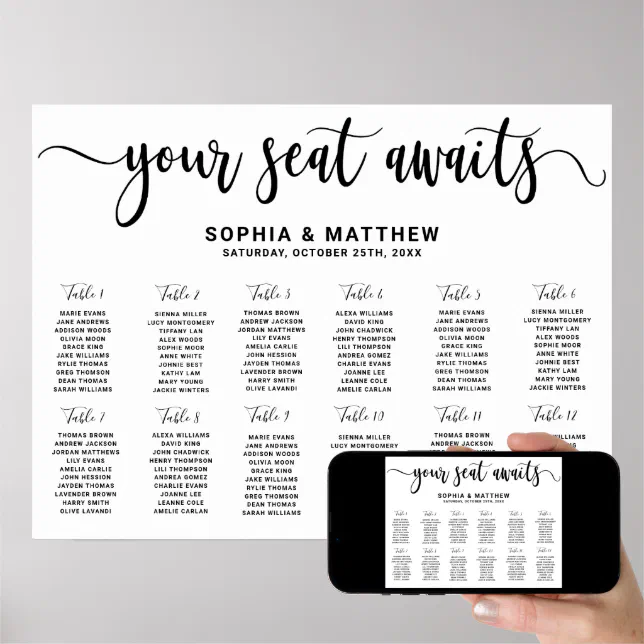 your seat awaits
SOPHIA & MATTHEW
SATURDAY, OCTOBER 25TH, 20XX
Table 1
MARIE EVANS
JANE ANDREWS
ADDISON WOODS
OLIVIA MOON
GRACE KING
JAKE WILLIAMS
RYLIE THOMAS
GREG THOMSON
DEAN THOMAS
SARAH WILLIAMS
Table 2
SIENNA MILLER
LUCY MONTGOMERY
TIFFANY LAN
ALEX WOODS
SOPHIE MOOR
ANNE WHITE
JOHNIE BEST
KATHY LAM
MARY YOUNG
JACKIE WINTERS
Table 3
THOMAS BROWN
ANDREW JACKSON
JORDAN MATTHEWS
LILY EVANS
AMELIA CARLIE
JOHN HESSION
JAYDEN THOMAS
LAVENDER BROWN
HARRY SMITH
OLIVE LAVANDI
Table 6
ALEXA WILLIAMS
DAVID KING
JOHN CHADWICK
HENRY THOMPSON
LILI THOMPSON
ANDREA GOMEZ
CHARLIE EVANS
JOANNE LEE
LEANNE COLE
AMELIE CARLAN
Table 5
MARIE EVANS
JANE ANDREWS
ADDISON WOODS
OLIVIA MOON
GRACE KING
JAKE WILLIAMS
RYLIE THOMAS
GREG THOMSON
DEAN THOMAS
SARAH WILLIAMS
Table 6
SIENNA MILLER
LUCY MONTGOMERY
TIFFANY LAN
ALEX WOODS
SOPHIE MOOR
ANNE WHITE
JOHNIE BEST
KATHY LAM
MARY YOUNG
JACKIE WINTERS
Table 7
THOMAS BROWN
ANDREW JACKSON
JORDAN MATTHEWS
LILY EVANS
AMELIA CARLIE
JOHN HESSION
JAYDEN THOMAS
LAVENDER BROWN
HARRY SMITH
OLIVE LAVANDI
Table 8
ALEXA WILLIAMS
DAVID KING
JOHN CHADWICK
HENRY THOMPSON
LILI THOMPSON
ANDREA GOMEZ
CHARLIE EVANS
JOANNE LEE
LEANNE COLE
AMELIE CARLAN
Table 9
MARIE EVANS
JANE ANDREWS
ADDISON WOODS
OLIVIA MOON
GRACE KING
JAKE WILLIAMS
RYLIE THOMAS
GREG THOMSON
DEAN THOMAS
SARAH WILLIAMS
Table 10
SIENNA MILLER
LUCY MONTGOMERY
Table 11
THOMAS BROWN
Table 12
ALEXA WILLIAMS
your seat awaits
SOPHIA & MATTHEW
SATURDAY, OCTOBER 25TH, 20XX